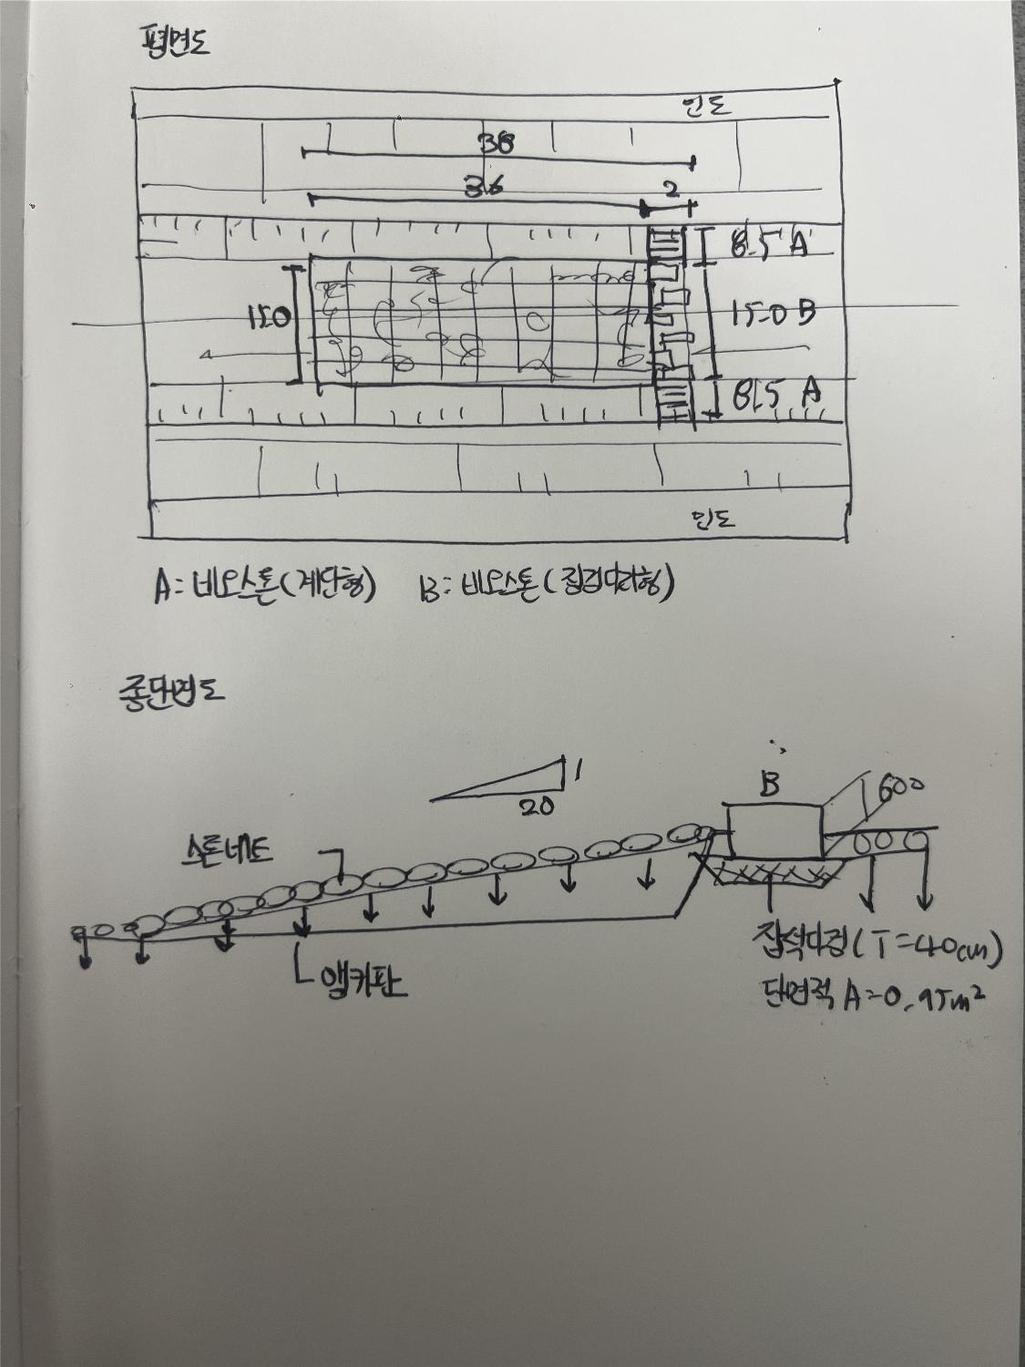 평면도
인도
38
36
2
8.5 A
150
15.0 B
8.5 A
인도
A: 네오스톤(계단형) B: 네오스톤(징검다리형)
종단면도
1
20
B
600
스톤네트
앵커판
잡석다짐(T=40cm)
단면적 A=0.95m²